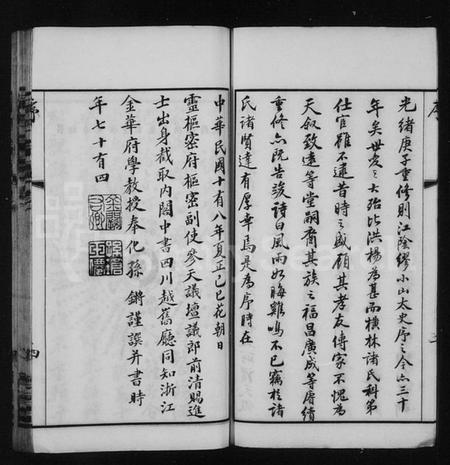 序
光緒庚子重修則江陰繆小山太史序之今亦三十
年矣世变之大殆比洪楊為甚而橫林諸氏科第
仕宦雖不逮昔時之盛顧其孝友傳家不愧為
天叙致遠等堂嗣裔其族之福昌廣成等房續
重修亦既告竣詩曰風雨如晦雞鳴不已竊於諸
氏諸賢達有厚幸焉是為序時在
中華民國十有八年夏正己巳花朝日
靈樞密府樞密副使參天議壇議郎前清賜進
士出身截取內閣中書四川越嶲廳同知浙江
金華府學教授奉化孫鏘謹譔并書時
年七十有四
序